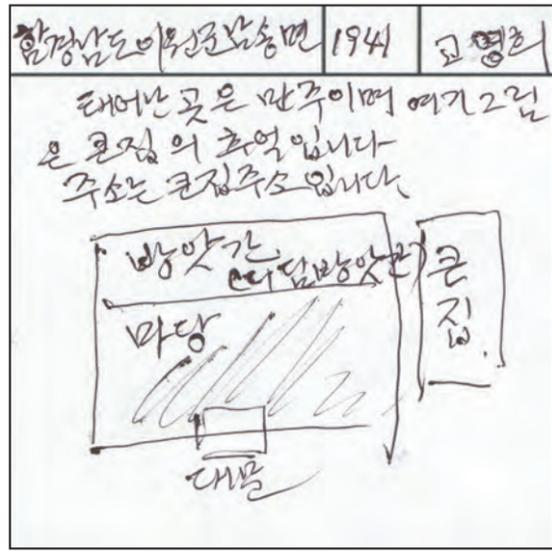 함경남도 이원군 남송면 1941 고영희
태어난 곳은 만주이며 여기 그림
은 큰집의 추억입니다
주소는 큰집주소입니다.
방앗간
(디딤방앗간)
큰집.
마당
대문